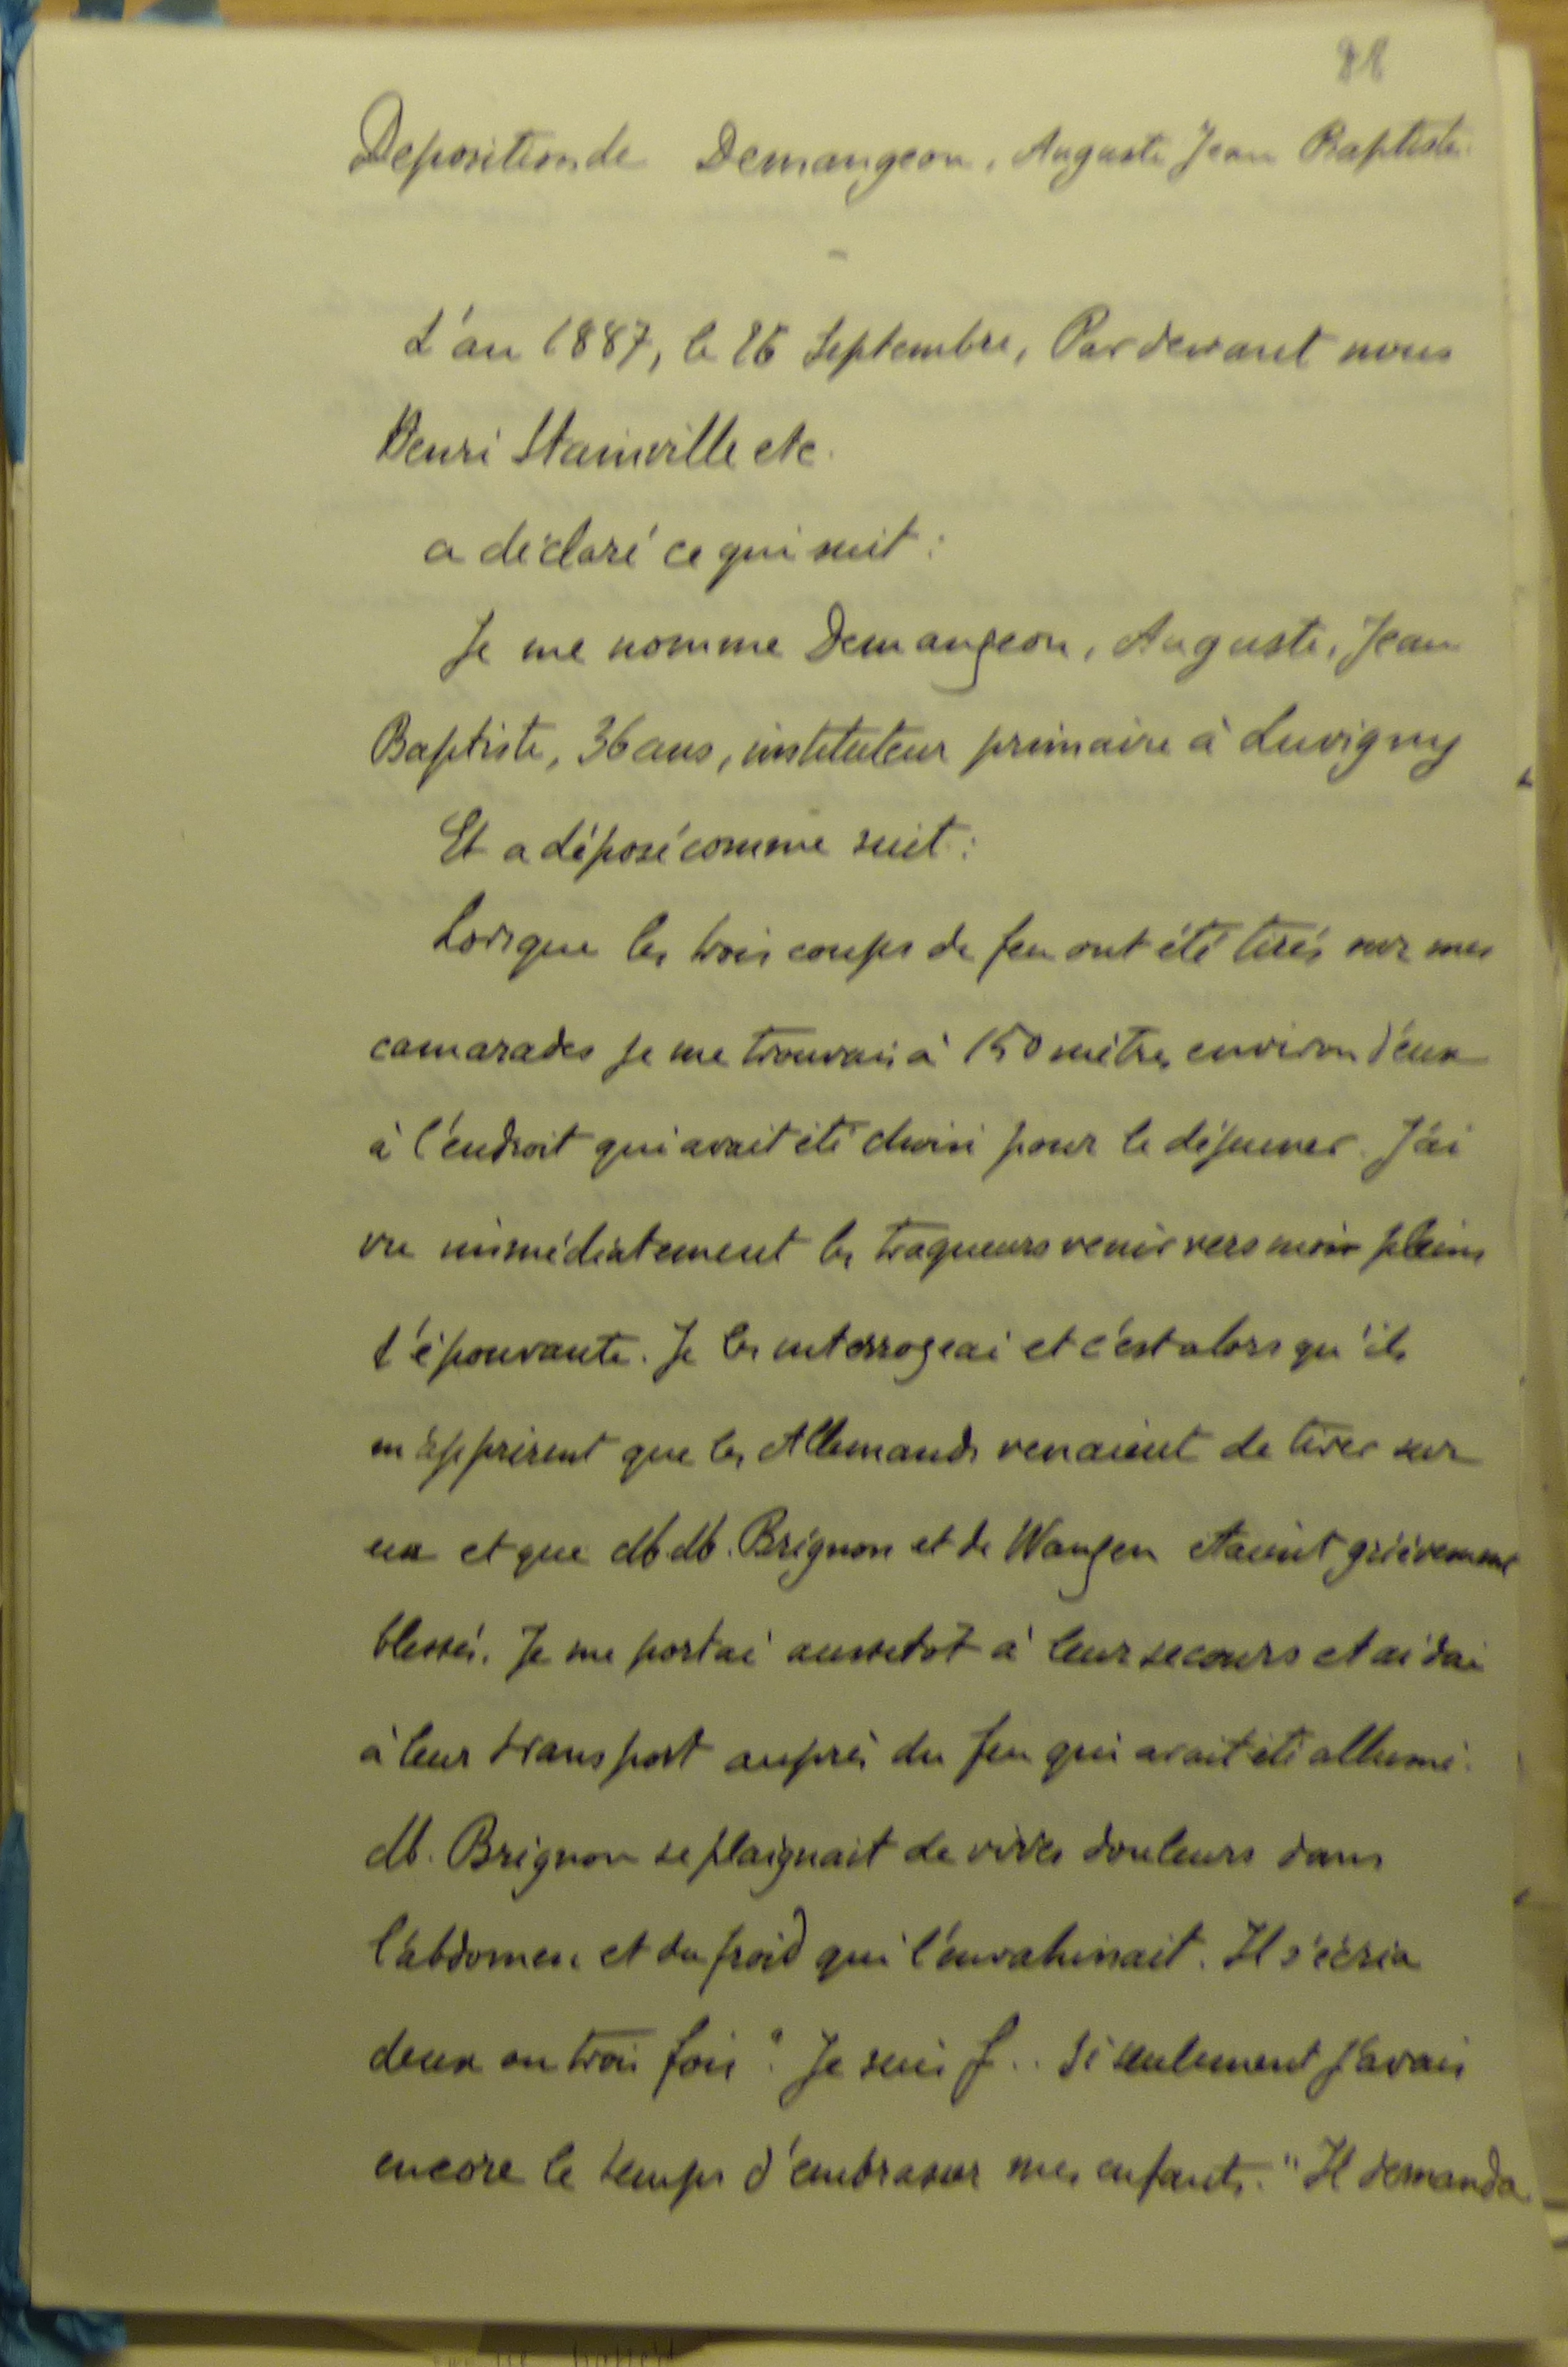 Deposition de Demangeon, Auguste Jean Baptiste.
L'an 1887, le 26 Septembre, Par devant nous
Henri Stainville etc.
a déclaré ce qui suit :
Je me nomme Demangeon, Auguste, Jean
Baptiste, 36 ans, instituteur primaire à Luvigny
Et a déposé comme suit :
Lorsque les trois coups de feu ont été tirés sur mes
camarades je me trouvais à 150 mètres environ d'eux
à l'endroit qui avait été choisi pour le déjeuner. J'ai
vu immédiatement les traqueurs venir vers moi pleins
d'épouvante. Je les interrogeai et c'est alors qu'ils
m'apprirent que les Allemands venaient de tirer sur
eux et que M.M. Brignon et de Wangen étaient grièvemme
blessés. Je me portai aussitôt à leur secours et aidai
à leur transport auprès du feu qui avait été allumé.
M. Brignon se plaignait de vives douleurs dans
l'abdomen et du froid qui l'envahissait. Il s'écria
deux ou trois fois " Je suis f.. Si seulement j'avais
encore le temps d'embrasser mes enfants. " Il demanda